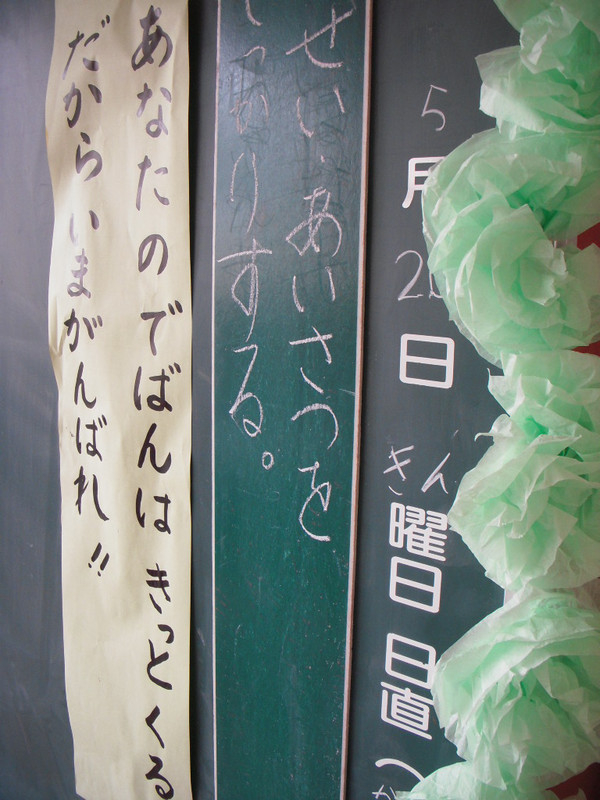 5月2日
きん曜日
日直
せい、あいさつを
っかりする。
あなたのでばんは きっとくる
だからいまがんばれ!!